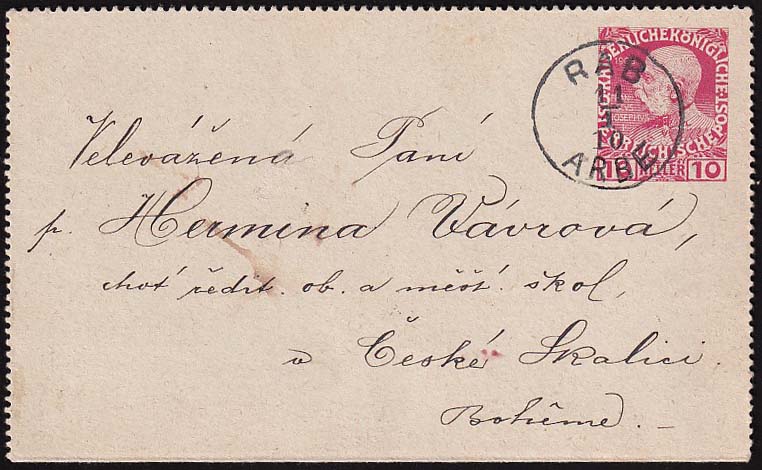 KAISERLICHE KÖNIGLICHE ÖSTERREICHISCHE POST
10 HELLER 10
RAB
11
1
10
ARBE
Velevážená Paní
p. Hermina Vávrová,
choť ředit. ob. a měšť. škol,
v České Skalici
Bohême. –